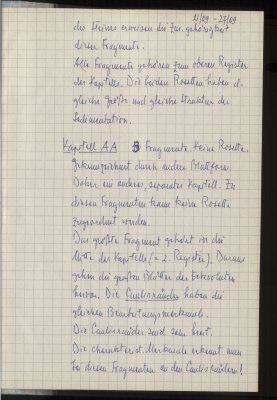 21/09 - 27/09
des Steines erweisen die Zugehörigkeit
dieser Fragmente.
Alle Fragmente gehören zum oberen Register
des Kapitells. Die beiden Rosetten haben d.
gleiche Größe und gleiche Struktur der
Sedimentation.
Kapitell AA 3 Fragmente. keine Rosette
Gekennzeichnet durch andere Blattform.
Daher ein anderes, separates Kapitell. Zu
diesen Fragmenten kann keine Rosette
zugeordnet werden.
Das größte Fragment gehört in die
Mitte des Kapitells (= 2. Register). Daraus
gehen die großen Blätter der Eckvoluten
hervor. Die Caulisränder haben die
gleichen Bearbeitungsmerkmale.
Die Caulisränder sind sehr breit.
Die charakterist. Merkmale erkennt man
bei diesen Fragmenten an den Caulisrändern!